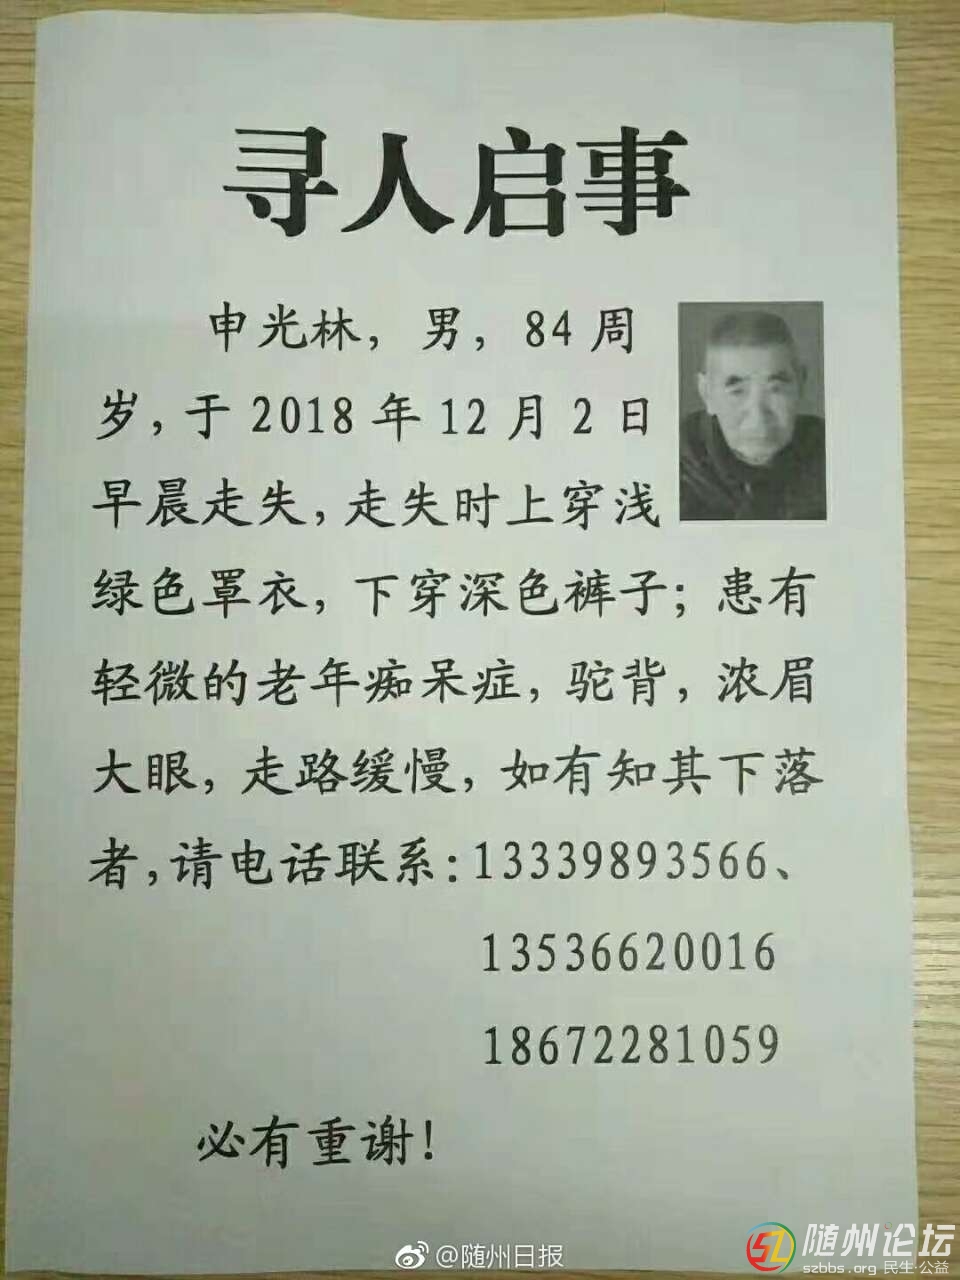 寻人启事
申光林，男，84周
岁，于2018年12月2日
早晨走失，走失时上穿浅
绿色罩衣，下穿深色裤子；患有
轻微的老年痴呆症，驼背，浓眉
大眼，走路缓慢，如有知其下落
者，请电话联系：13339893566、
13536620016
18672281059
必有重谢！
@随州日报
随州论坛
szbbs.org 民生·公益